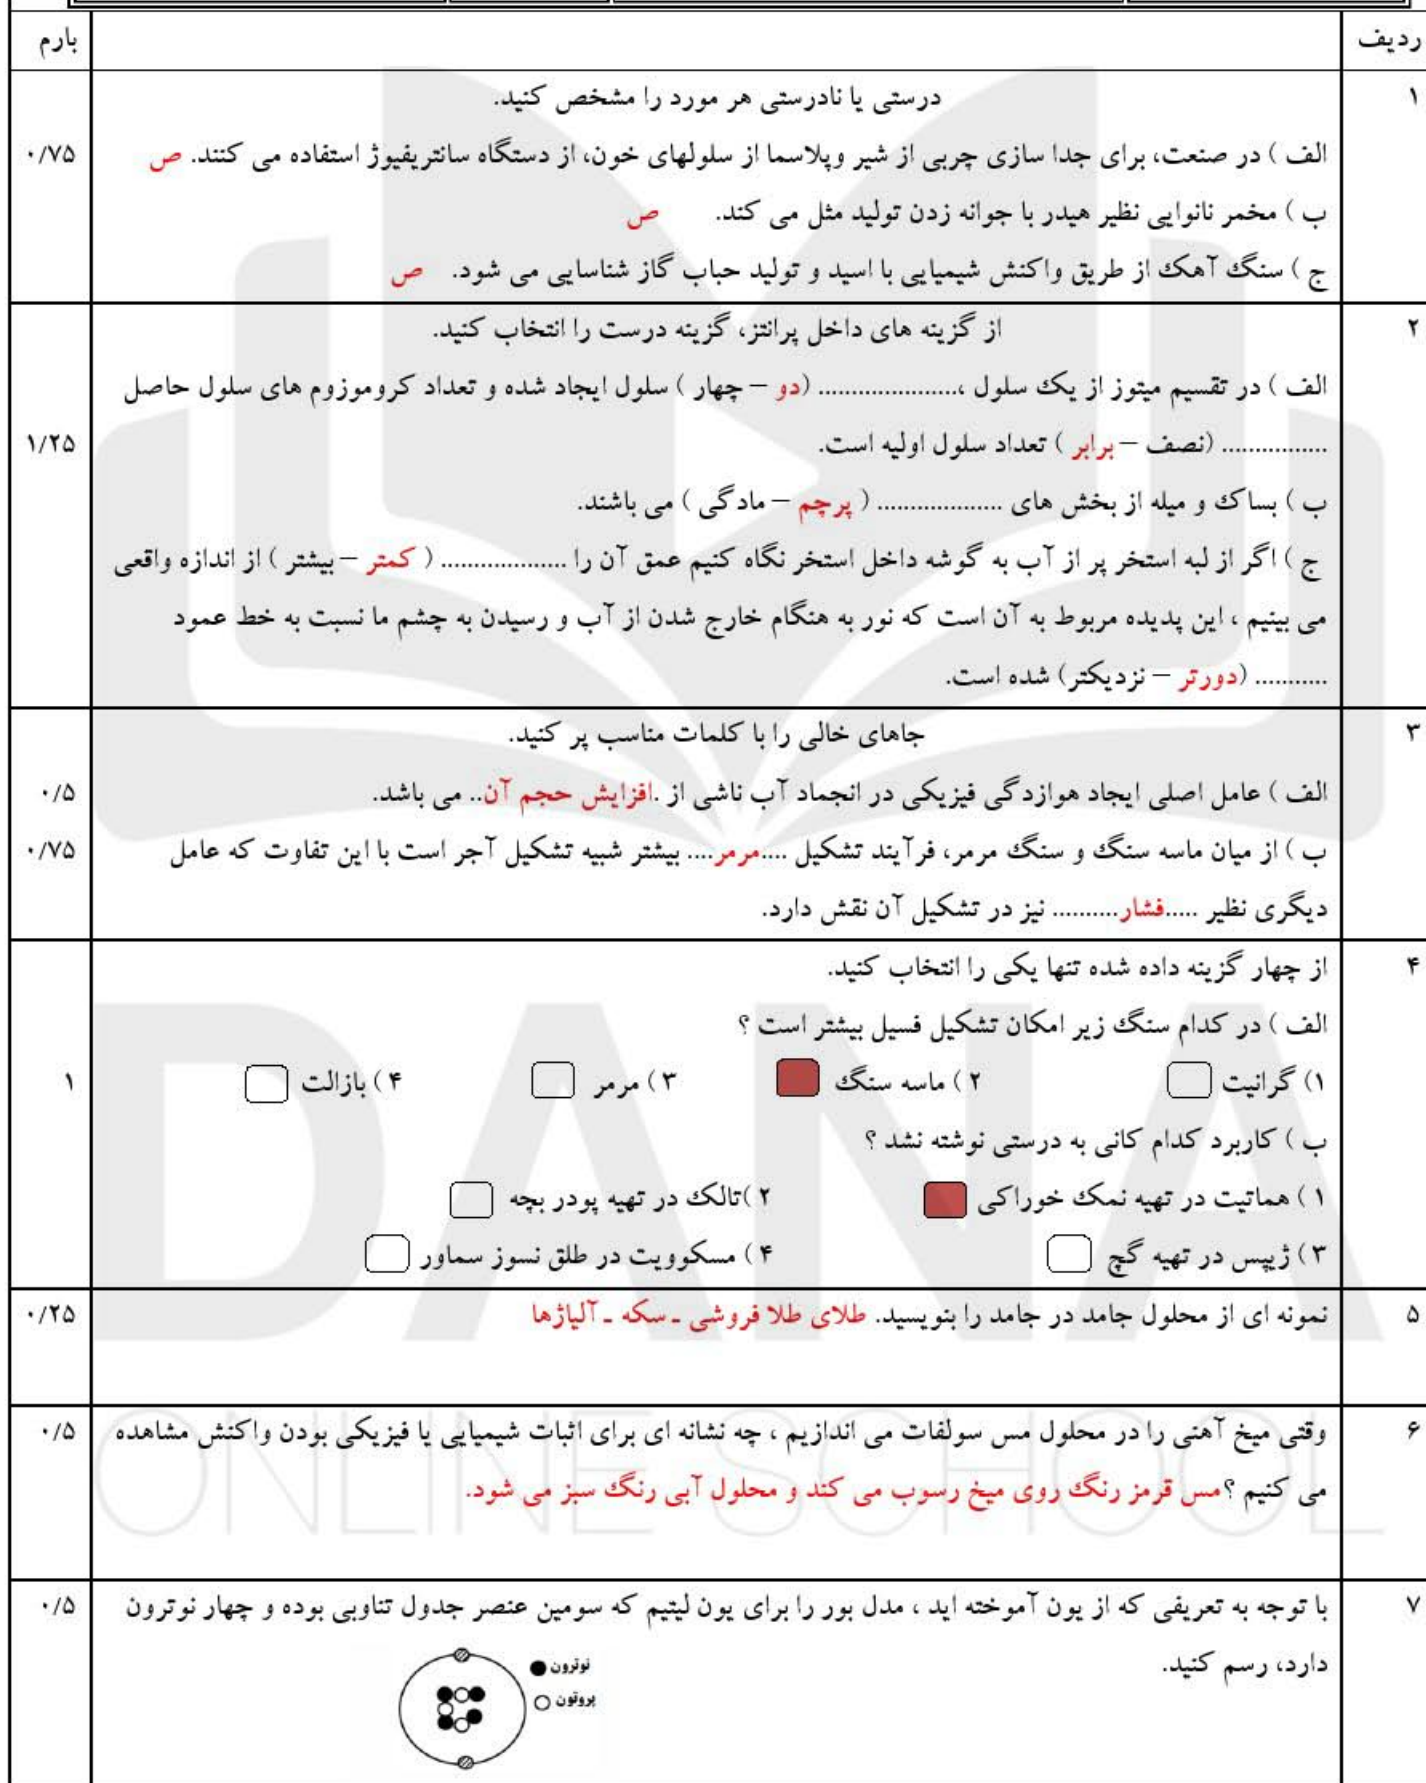 ردیف
بارم
۱
درستی یا نادرستی هر مورد را مشخص کنید.
الف ) در صنعت، برای جدا سازی چربی از شیر وپلاسما از سلولهای خون، از دستگاه سانتریفیوژ استفاده می کنند. ص
۰/۷۵
ب ) مخمر نانوایی نظیر هیدر با جوانه زدن تولید مثل می کند. ص
ج ) سنگ آهک از طریق واکنش شیمیایی با اسید و تولید حباب گاز شناسایی می شود. ص
۲
از گزینه های داخل پرانتز، گزینه درست را انتخاب کنید.
الف ) در تقسیم میتوز از یک سلول ،..................... (دو – چهار ) سلول ایجاد شده و تعداد کروموزوم های سلول حاصل
................ (نصف – برابر ) تعداد سلول اولیه است.
۱/۲۵
ب ) بساک و میله از بخش های ................... ( پرچم – مادگی ) می باشند.
ج ) اگر از لبه استخر پر از آب به گوشه داخل استخر نگاه کنیم عمق آن را ................... ( کمتر – بیشتر ) از اندازه واقعی
می بینیم ، این پدیده مربوط به آن است که نور به هنگام خارج شدن از آب و رسیدن به چشم ما نسبت به خط عمود
........... (دورتر – نزدیکتر) شده است.
۳
جاهای خالی را با کلمات مناسب پر کنید.
الف ) عامل اصلی ایجاد هوازدگی فیزیکی در انجماد آب ناشی از .افزایش حجم آن.. می باشد.
۰/۵
ب ) از میان ماسه سنگ و سنگ مرمر، فرآیند تشکیل ....مرمر.... بیشتر شبیه تشکیل آجر است با این تفاوت که عامل
۰/۷۵
دیگری نظیر .....فشار.......... نیز در تشکیل آن نقش دارد.
۴
از چهار گزینه داده شده تنها یکی را انتخاب کنید.
الف ) در کدام سنگ زیر امکان تشکیل فسیل بیشتر است ؟
۱) گرانیت ۲ ) ماسه سنگ ۳ ) مرمر ۴ ) بازالت
۱
ب ) کاربرد کدام کانی به درستی نوشته نشد ؟
۱ ) هماتیت در تهیه نمک خوراکی ۲ )تالک در تهیه پودر بچه
۳ ) ژیپس در تهیه گچ ۴ ) مسکوویت در طلق نسوز سماور
۵
نمونه ای از محلول جامد در جامد را بنویسید. طلای طلا فروشی - سکه - آلیاژها
۰/۲۵
۶
وقتی میخ آهنی را در محلول مس سولفات می اندازیم ، چه نشانه ای برای اثبات شیمیایی یا فیزیکی بودن واکنش مشاهده
۰/۵
می کنیم ؟مس قرمز رنگ روی میخ رسوب می کند و محلول آبی رنگ سبز می شود.
۷
با توجه به تعریفی که از یون آموخته اید ، مدل بور را برای یون لیتیم که سومین عنصر جدول تناوبی بوده و چهار نوترون
۰/۵
دارد، رسم کنید.
نوترون
پروتون
DANA
ONLINE SCHOOL